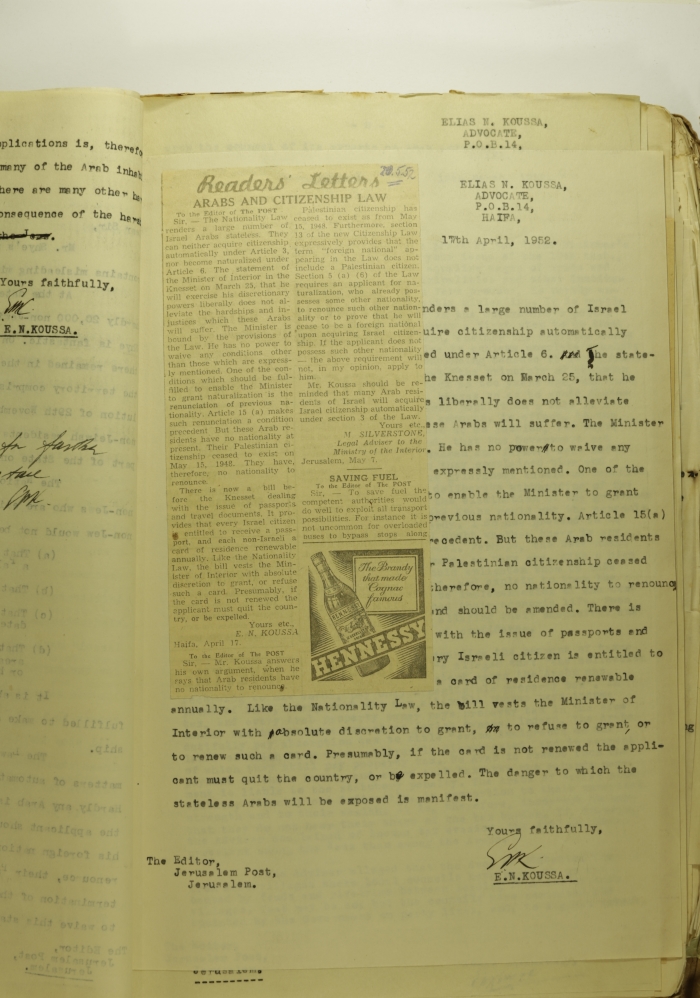 plications is, therefo
many of the Arab inhab
here are many other ha
onsequence of the hard
the law.
Yours faithfully,
E.N.KOUSSA.
ELIAS N. KOUSSA,
ADVOCATE,
P.O.B.14,
ELIAS N. KOUSSA,
ADVOCATE,
P.O.B.14,
HAIFA,
17th April, 1952.
Readers' Letters
ARABS AND CITIZENSHIP LAW
To the Editor of The POST
Sir, — The Nationality Law
renders a large number of
Israel Arabs stateless. They
can neither acquire citizenship
automatically under Article 3,
nor become naturalized under
Article 6. The statement of
the Minister of Interior in the
Knesset on March 25, that he
will exercise his discretionary
powers liberally does not al-
leviate the hardships and in-
justices which these Arabs
will suffer. The Minister is
bound by the provisions of
the Law. He has no power to
waive any conditions other
than those which are express-
ly mentioned. One of the con-
ditions which should be ful-
filled to enable the Minister
to grant naturalization is the
renunciation of previous na-
tionality. Article 15 (a) makes
such renunciation a condition
precedent But these Arab re-
sidents have no nationality at
present. Their Palestinian ci-
tizenship ceased to exist on
May 15, 1948. They have,
therefore, no nationality to
renounce.
There is now a bill be-
fore the Knesset dealing
with the issue of passports
and travel documents. It pro-
vides that every Israel citizen
is entitled to receive a pass-
port, and each non-Israeli a
card of residence renewable
annually. Like the Nationality
Law, the bill vests the Min-
ister of Interior with absolute
discretion to grant, or refuse
such a card. Presumably, if
the card is not renewed the
applicant must quit the coun-
try, or be expelled.
Yours etc.,
E. N. KOUSSA
Haifa, April 17.
To the Editor of The POST
Sir, — Mr. Koussa answers
his own argument, when he
says that Arab residents have
no nationality to renounce
Palestinian citizenship has
ceased to exist as from May
15, 1948. Furthermore, section
13 of the new Citizenship Law
expressively provides that the
term "foreign national" ap-
pearing in the Law does not
include a Palestinian citizen.
Section 5 (a) (6) of the Law
requires an applicant for na-
turalization, who already pos-
sesses some other nationality,
to renounce such other nation-
ality or to prove that he will
cease to be a foreign national
upon acquiring Israel citizen-
ship. If the applicant does not
possess such other nationality
— the above requirement will
not, in my opinion, apply to
him.
Mr. Koussa should be re-
minded that many Arab resi-
dents of Israel will acquire
Israel citizenship automatically
under section 3 of the Law.
Yours etc.,
M. SILVERSTONE,
Legal Adviser to the
Ministry of the Interior.
Jerusalem, May 7.
SAVING FUEL
To the Editor of The POST
Sir, — To save fuel the
competent authorities would
do well to exploit all transport
possibilities. For instance it is
not uncommon for overloaded
buses to bypass stops along
The Brandy
that made
Cognac
famous
HENNESSY
nders a large number of Israel
uire citizenship automatically
ed under Article 6. The state-
he Knesset on March 25, that he
s liberally does not alleviate
ese Arabs will suffer. The Minister
. He has no power to waive any
expressly mentioned. One of the
to enable the Minister to grant
previous nationality. Article 15(a)
recedent. But these Arab residents
r Palestinian citizenship ceased
therefore, no nationality to renounc
nd should be amended. There is
with the issue of passports and
ry Israeli citizen is entitled to
a card of residence renewable
annually. Like the Nationality Law, the bill vests the Minister of
Interior with absolute discretion to grant, or to refuse to grant, or
to renew such a card. Presumably, if the card is not renewed the appli-
cant must quit the country, or be expelled. The danger to which the
stateless Arabs will be exposed is manifest.
Yours faithfully,
E.N.KOUSSA.
The Editor,
Jerusalem Post,
Jerusalem.
Jerusalem.